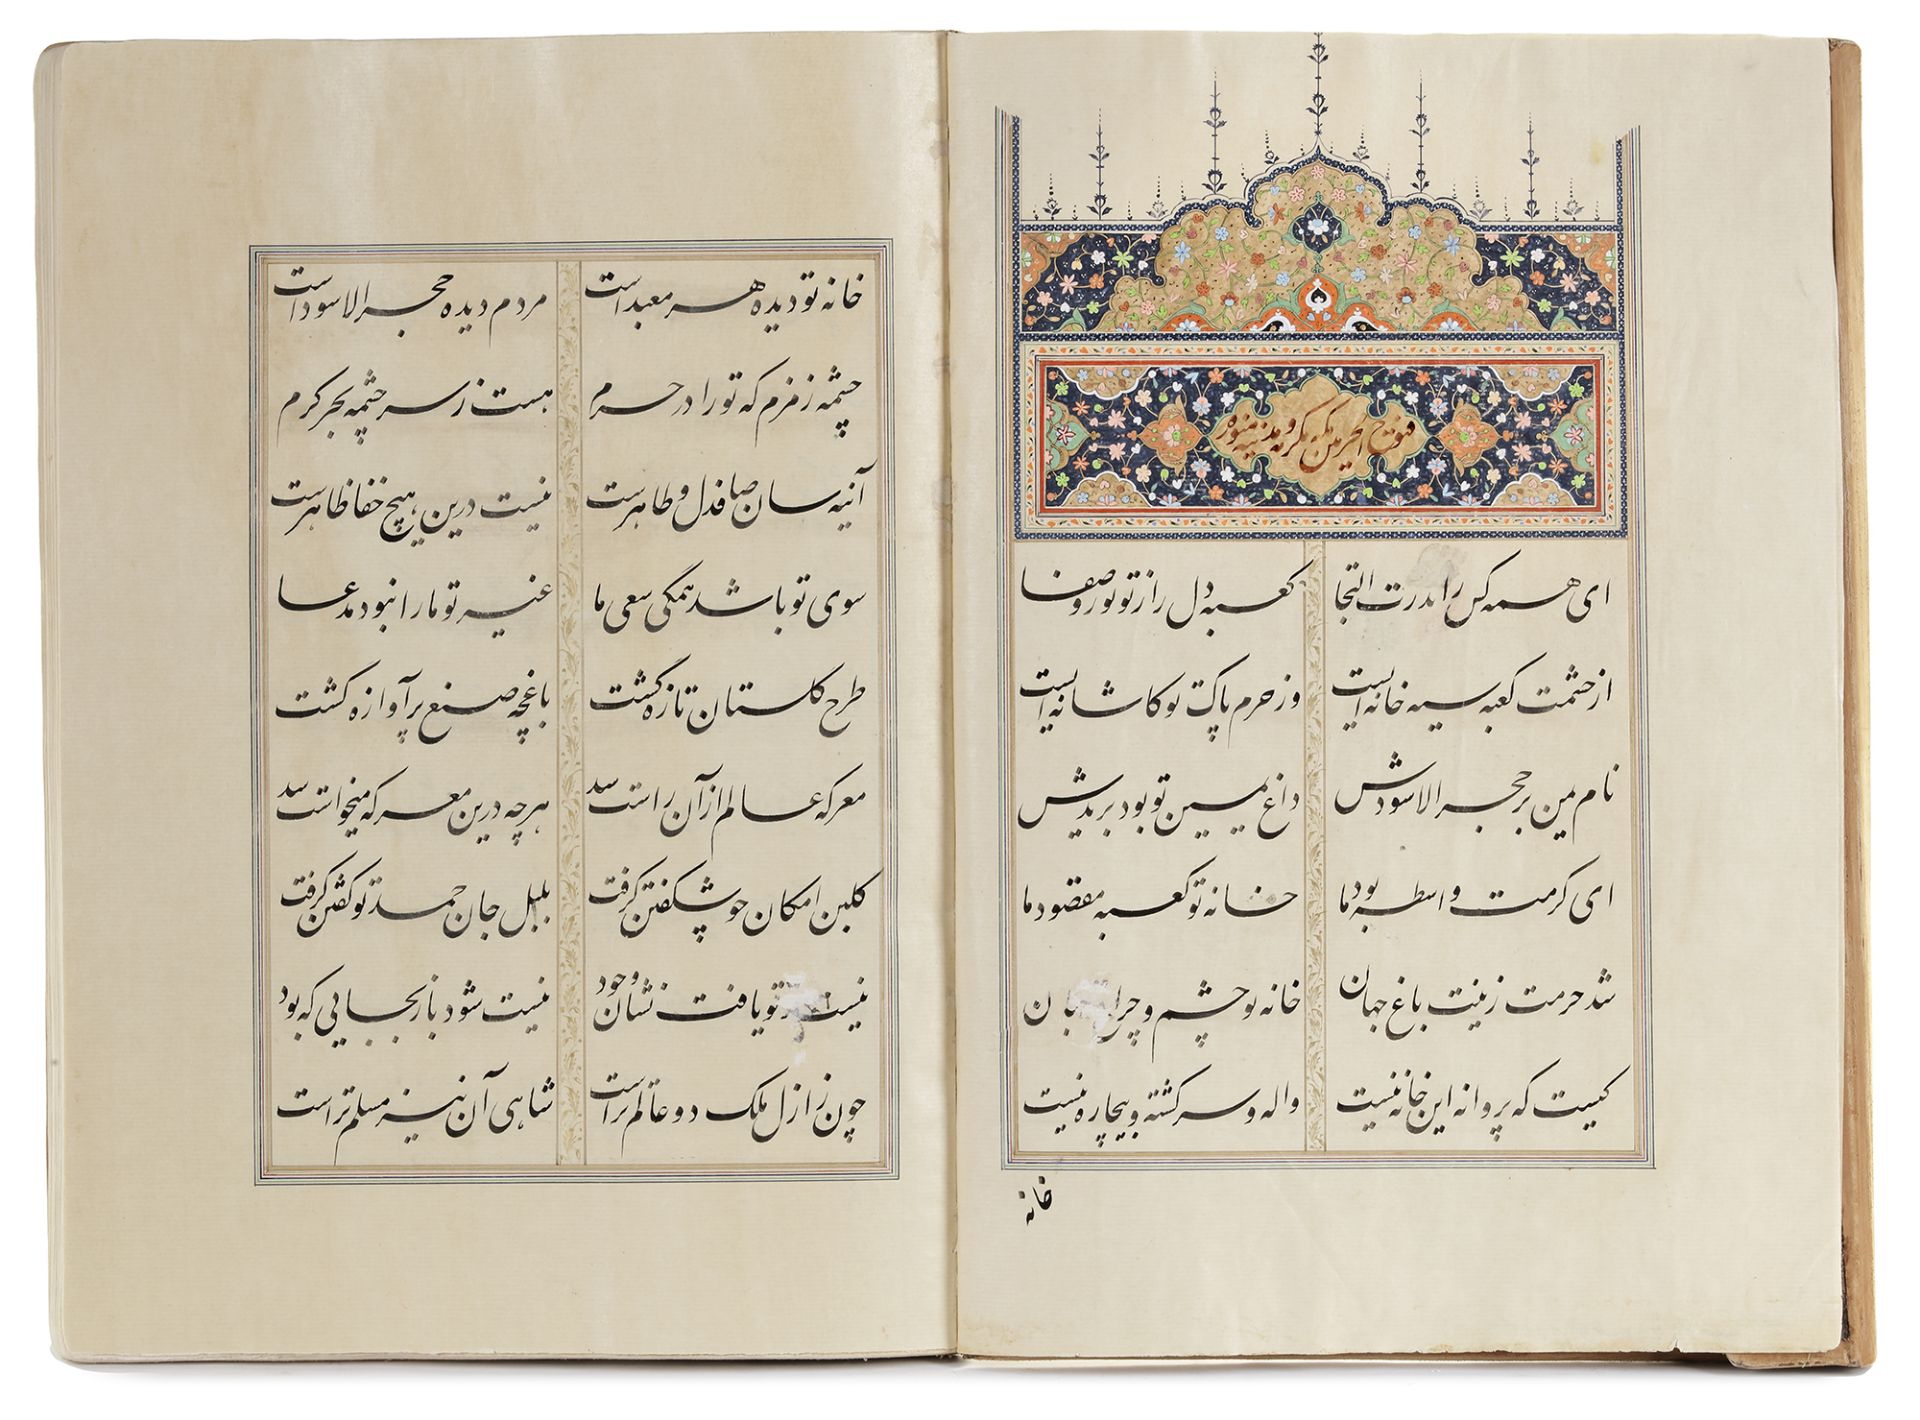 فتوح الحرمین مکه مکرمه و مدینه منوره
ای همه کس را بدرت التجا کعبه دل را ز تو نور و صفا
از حشمت کعبه سیه خانه ایست وز حرم پاک تو کاشانه ایست
نام من بر حجر الاسودش داغ یمین تو بود بر یدش
ای کرمت واسطه بود ما خانه تو کعبه مقصود ما
شد حرمت زینت باغ جهان خانه تو چشم و چراغ جهان
کیست که پروانه این خانه نیست واله و سرکشته و بیچاره نیست
خانه
خانه تو دیده هر معبد است مردم دیده حجر الاسود است
چشمه زمزم که تو را در حرم هست ز سر چشمه بحر کرم
آینه سان صافدل و طاهرست نیست درین هیچ خفا ظاهرست
سوی تو باشد همکی سعی ما غیر تو ما را نبود مدعا
طرح کلستان تازه کشت باغچه صنع بر آوازه کشت
معرکه عالم از آن راست شد هر چه درین معرکه میخواست شد
کلبن امکان چو شکفتن کرفت بلبل جان حمد تو کفتن کرفت
نیست تو یافت نشان وجود نیست شود باز بجایی که بود
چون ز ازل ملک دو عالم تراست شاهی آن نیز مسلم تراست